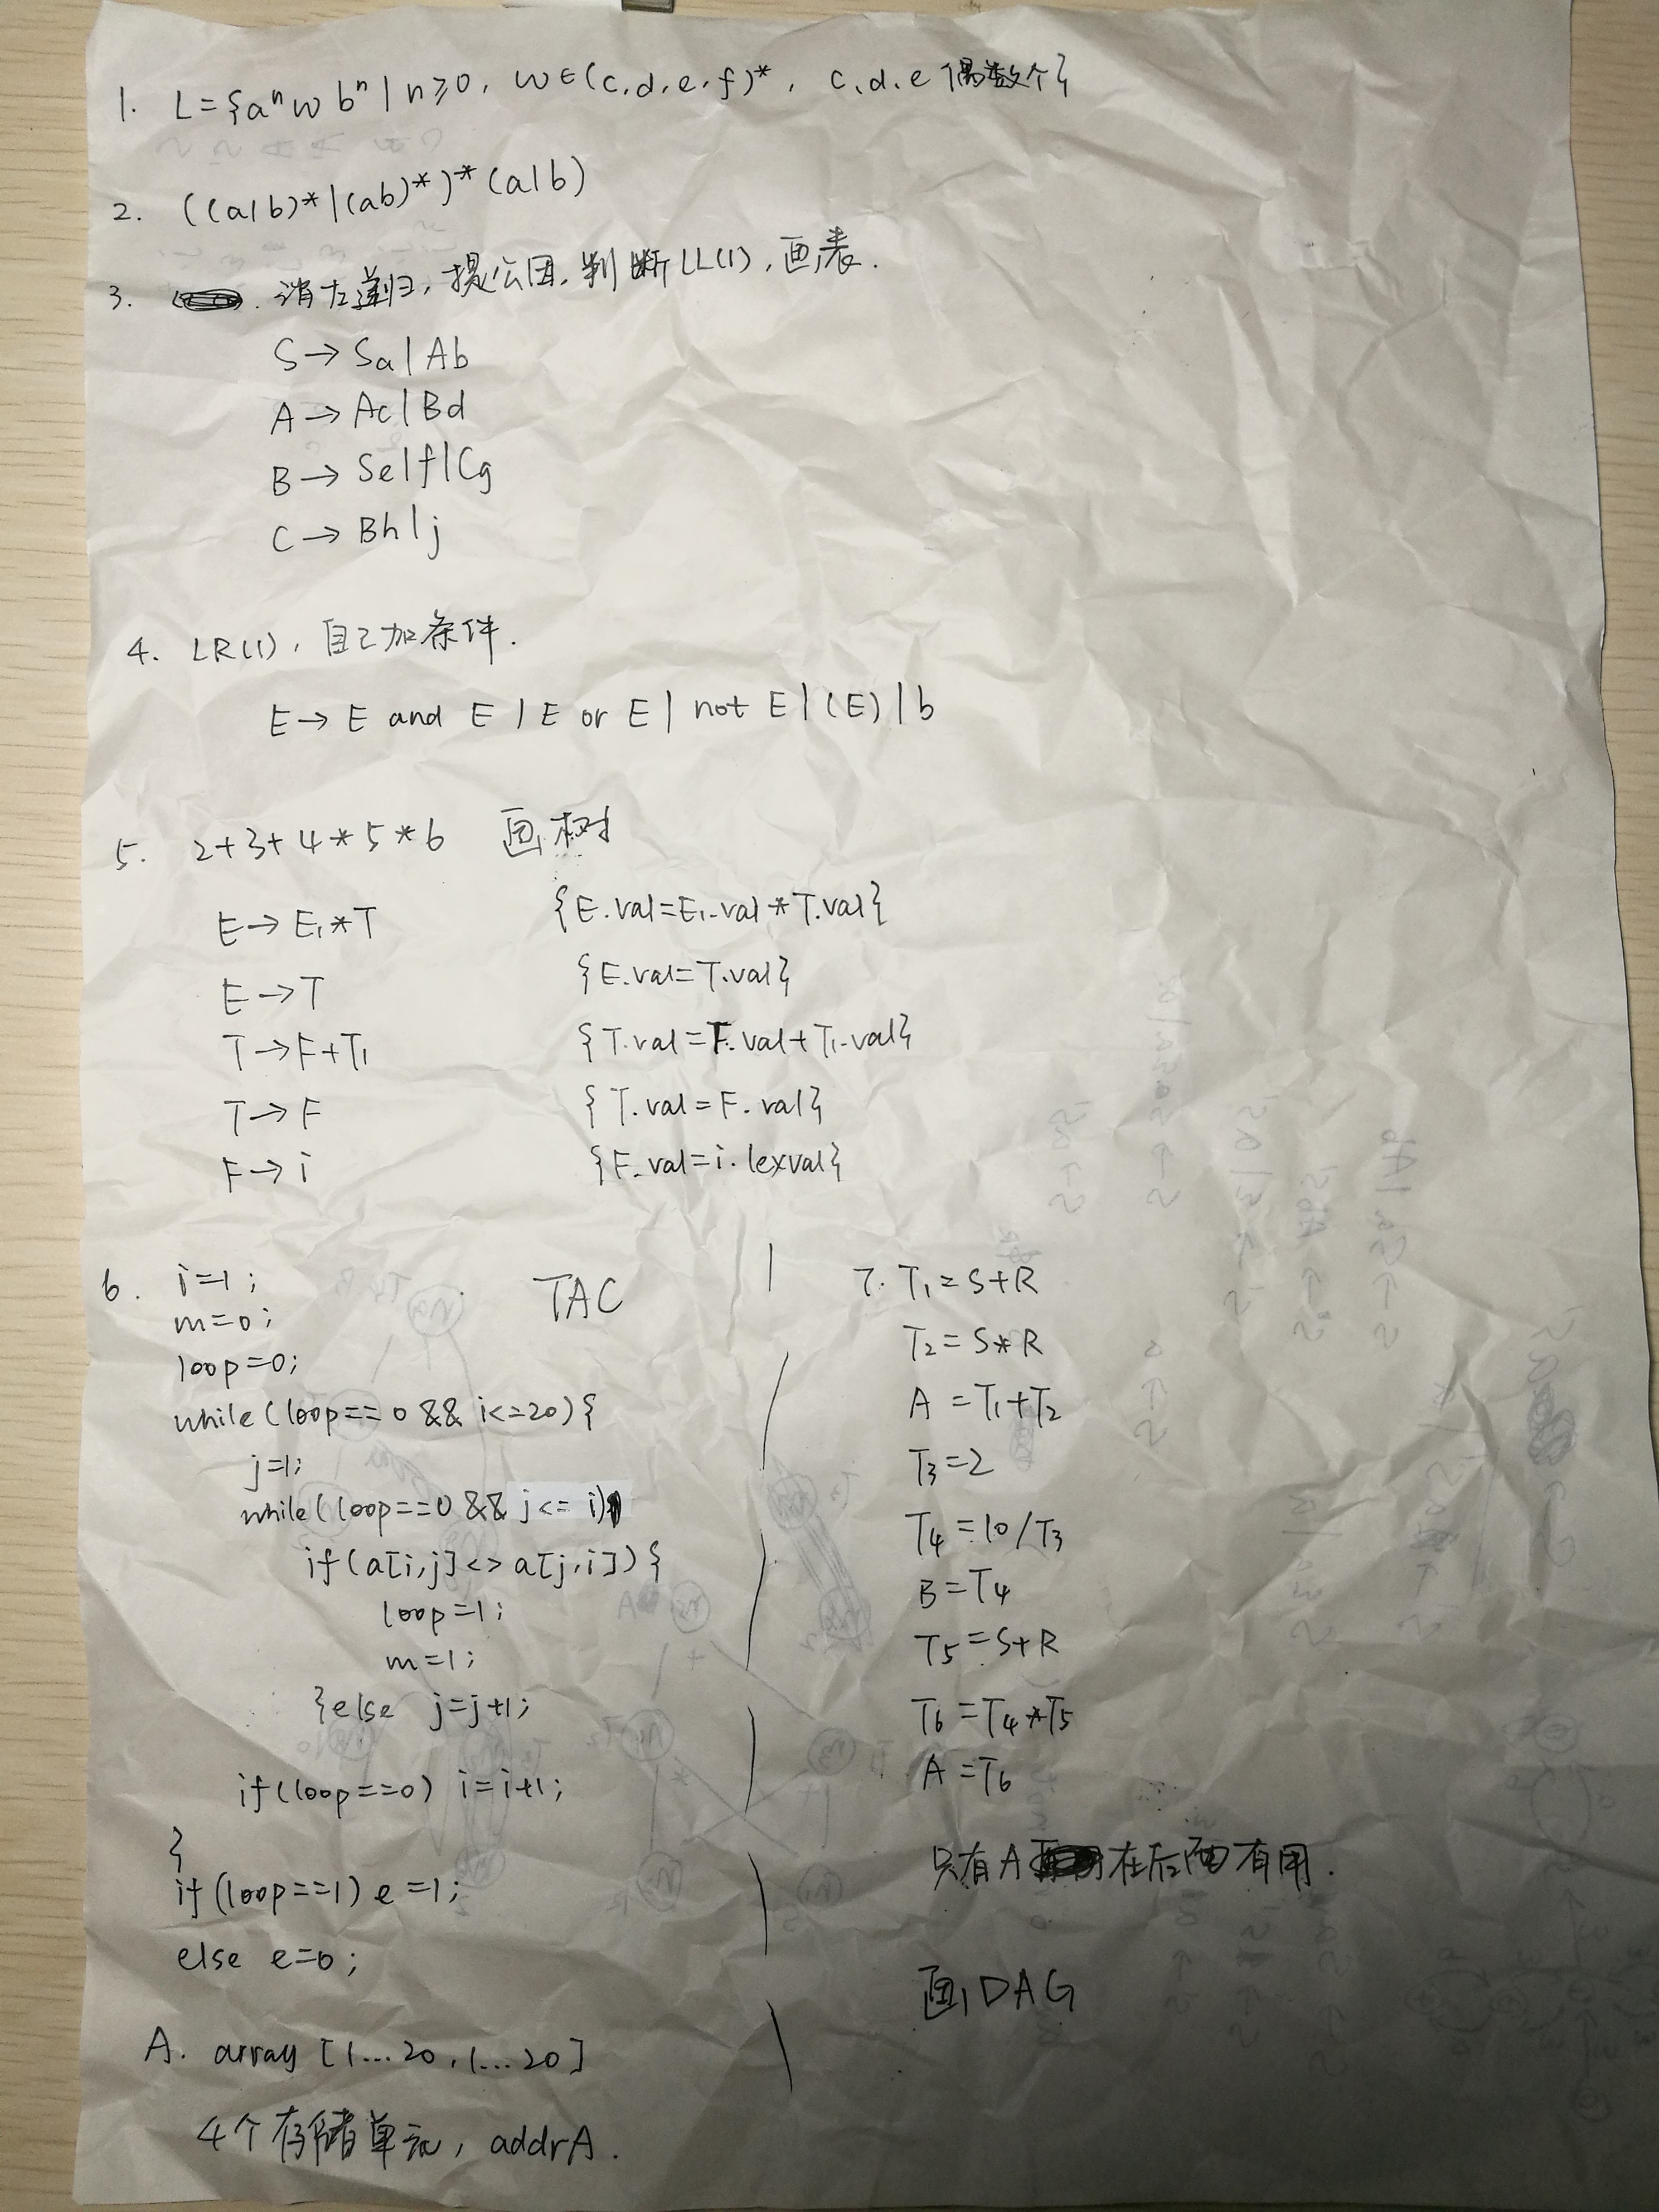 1. L={aⁿwbⁿ|n≥0, w∈(c,d,e,f)*, c,d,e偶数个}
2. ((a|b)*|(ab)*)*(a|b)
3. 消左递归,提公因,判断LL(1),画表.
S→Sa|Ab
A→Ac|Bd
B→Se|f|Cg
C→Bh|j
4. LR(1), 自己加条件.
E→E and E|E or E|not E|(E)|b
5. 2+3+4*5*6 画树
E→E₁*T {E.val=E₁.val*T.val}
E→T {E.val=T.val}
T→F+T₁ {T.val=F.val+T₁.val}
T→F {T.val=F.val}
F→i {F.val=i.lexval}
6. i=1; TAC
m=0;
loop=0;
while(loop==0 && i<=20){
j=1;
while(loop==0 && j<= i)
if(a[i,j]<>a[j,i]){
loop=1;
m=1;
}else j=j+1;
if(loop==0) i=i+1;
}
if(loop==1) e=1;
else e=0;
A. array [1...20,1...20]
4个存储单元, addrA.
7. T₁=S+R
T₂=S*R
A=T₁+T₂
T₃=2
T₄=10/T₃
B=T₄
T₅=S+R
T₆=T₄*T₅
A=T₆
只有A在后面有用.
画DAG